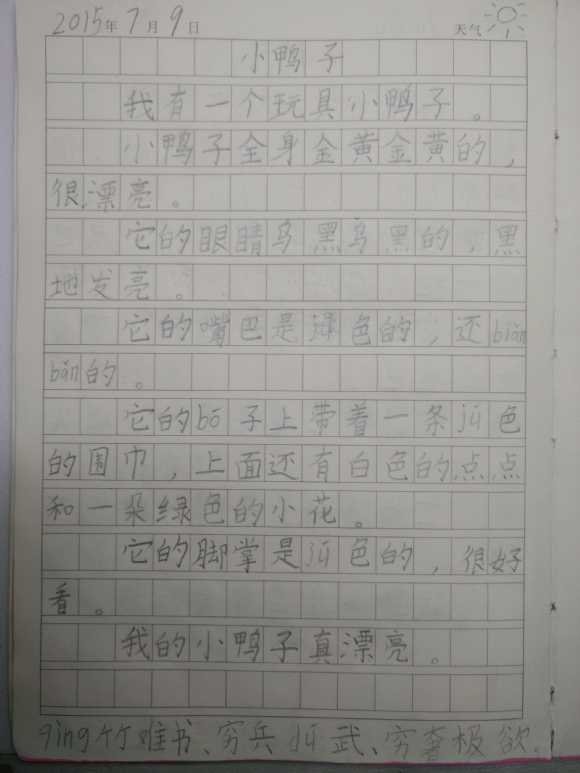 2015年7月9日 天气
小鸭子
我有一个玩具小鸭子。
小鸭子全身金黄金黄的，
很漂亮。
它的眼睛乌黑乌黑的，黑
地发亮。
它的嘴巴是色的，还biǎn
bǎn的。
它的bō子上带着一条jú色
的围巾，上面还有白色的点点
和一朵绿色的小花。
它的脚掌是jú色的，很好
看。
我的小鸭子真漂亮。
qìng竹难书、穷兵dú武、穷奢极欲。